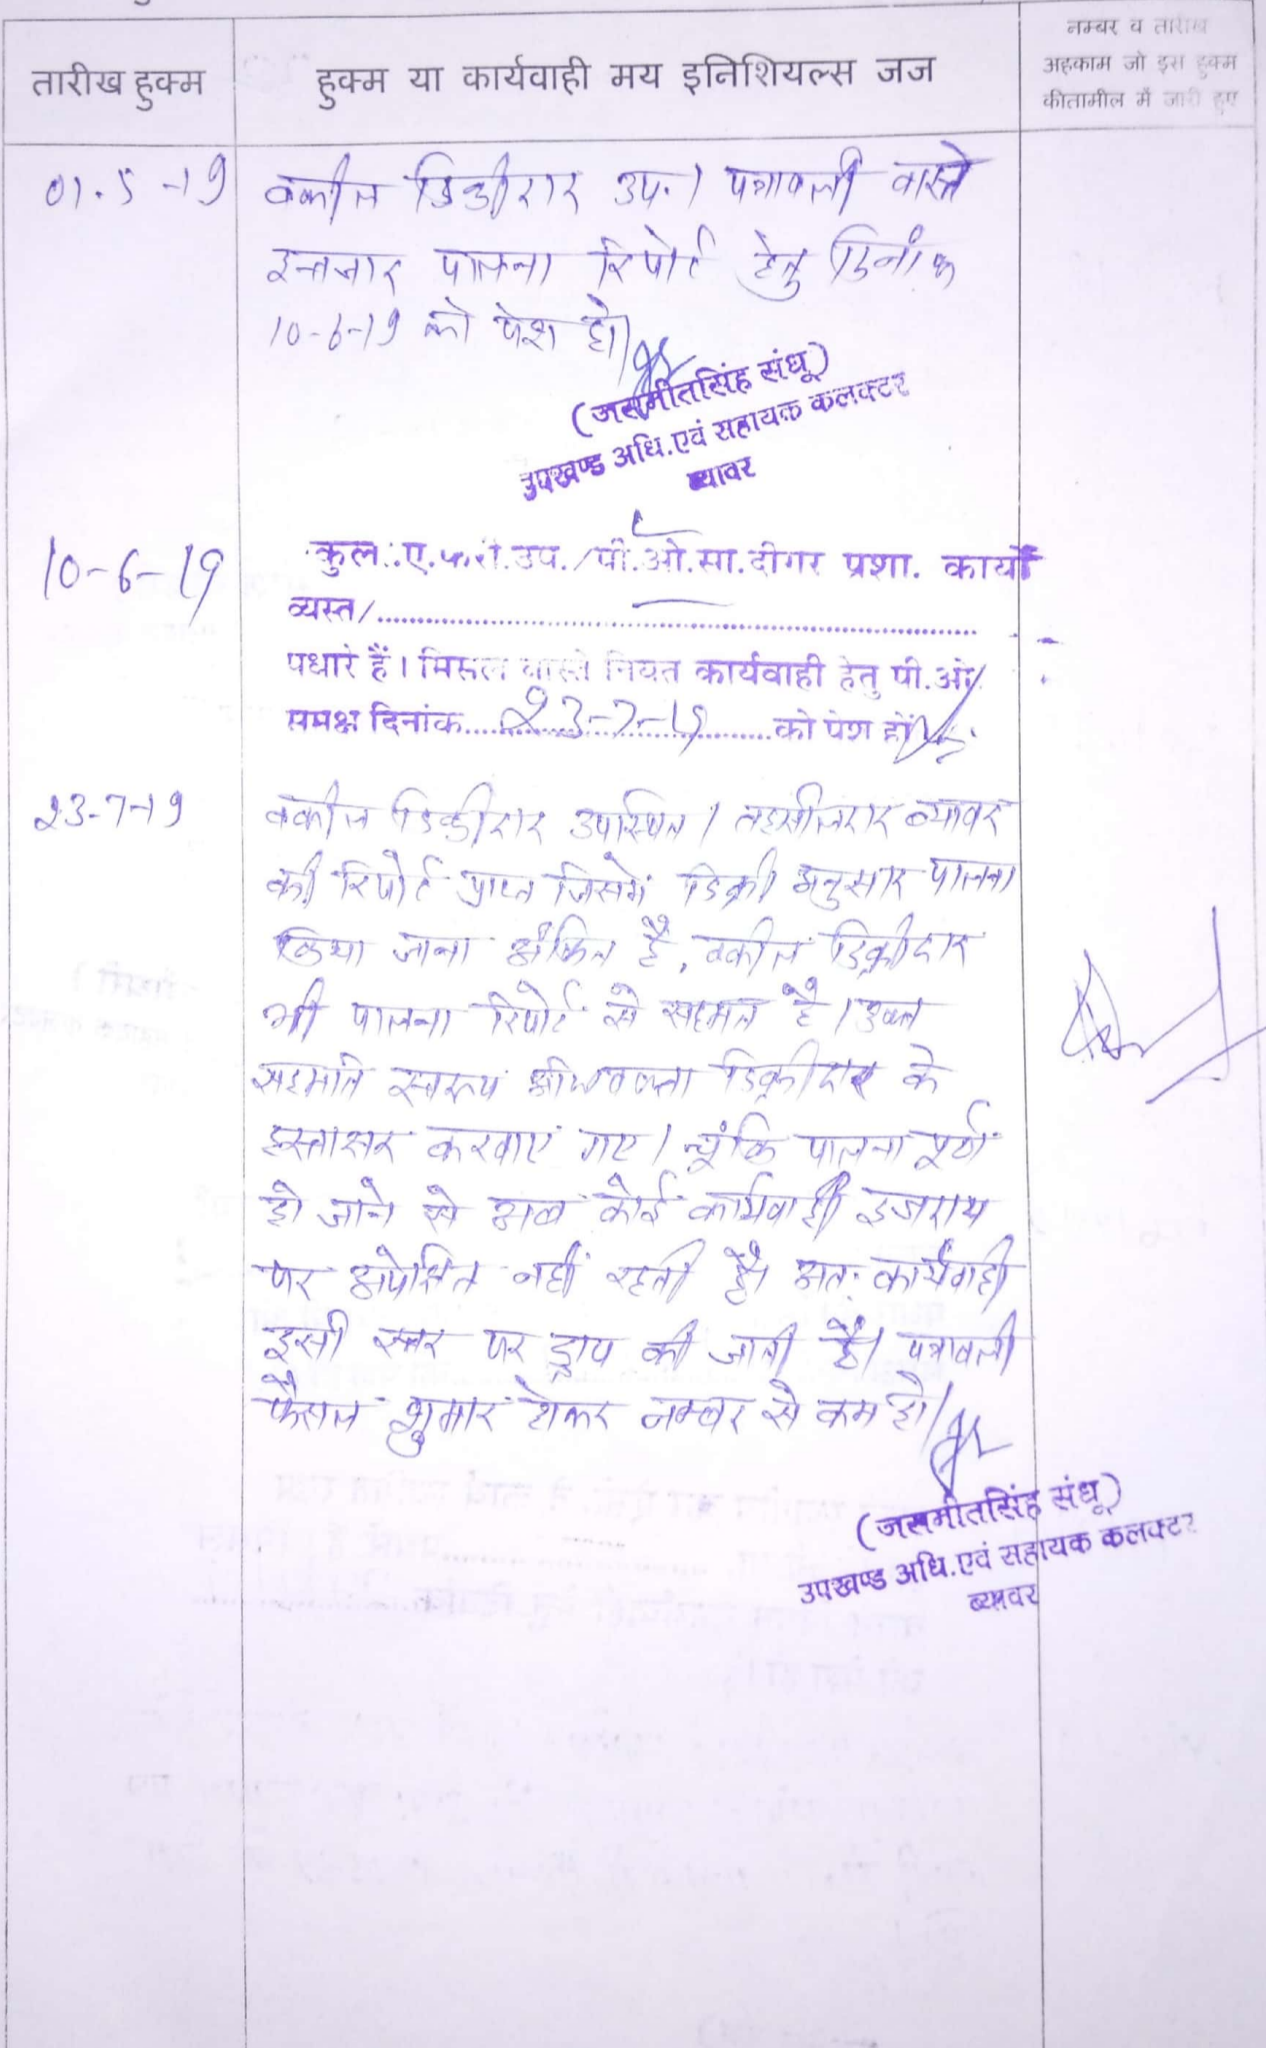 तारीख हुक्म
हुक्म या कार्यवाही मय इनिशियल्स जज
नम्बर व तारीख
अहकाम जो इस हुक्म
की तामील में जारी हुए
01.5-19
वकील डिक्रीदार उप.। पत्रावली वास्ते
इन्तजार पालना रिपोर्ट हेतु दिनांक
10-6-19 को पेश हो।
(जसमीतसिंह संधू)
उपखण्ड अधि.एवं सहायक कलक्टर
ब्यावर
10-6-19
कुल.ए.फरी.उप./पी.ओ.सा.दीगर प्रशा. कार्यो
व्यस्त/
पधारे हैं। मिसल वास्ते नियत कार्यवाही हेतु पी.ओ.
समक्ष दिनांक 23-7-19 को पेश हों
23-7-19
वकील डिक्रीदार उपस्थित। तहसीलदार ब्यावर
की रिपोर्ट प्राप्त जिसमें डिक्री अनुसार पालना
किया जाना अंकित है, वकील डिक्रीदार
भी पालना रिपोर्ट से सहमत है। उक्त
सहमति स्वरूप अधिवक्ता डिक्रीदार के
हस्ताक्षर करवाए गए। चूंकि पालना पूर्ण
हो जाने से अब कोई कार्यवाही इजराय
पर अपेक्षित नहीं रहती है। अतः कार्यवाही
इसी स्तर पर ड्राप की जाती है। पत्रावली
फैसल शुमार होकर नम्बर से कम हो।
(जसमीतसिंह संधू)
उपखण्ड अधि.एवं सहायक कलक्टर
ब्यावर